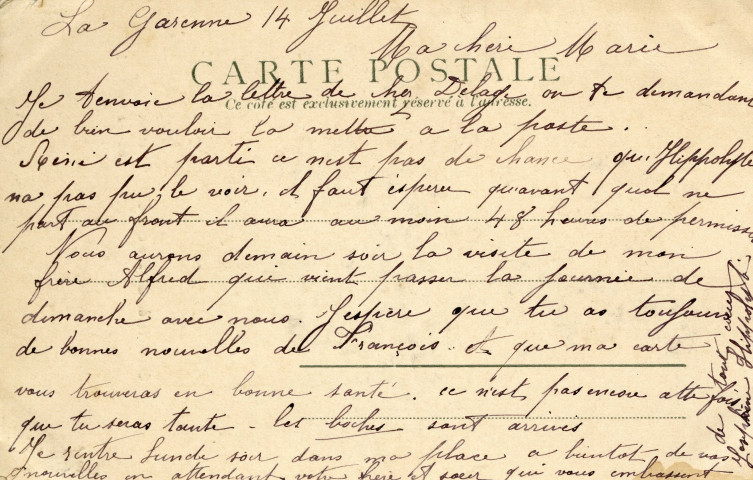 La Garenne 14 Juillet
Ma chère Marie
CARTE POSTALE
Ce côté est exclusivement réservé à l'adresse.
Je t'envoie la lettre de chez Delage en te demandant
de bien vouloir la mettre a la poste.
est parti ce n'est pas de chance que Hippolyte
na pas pu le voir. il faut espérer qu'avant quol ne
part au front il aura au moin 48 heures de permission
Nous aurons demain soir la visite de mon
frère Alfred qui vient passer la journée de
dimanche avec nous. J'espère que tu as toujours
de bonnes nouvelles de François. et que ma carte
vous trouveras en bonne santé. ce n'est pas encore cette fois
que tu seras tante - les boches sont arrivés
Je rentre lundi soir dans ma place a bientot de vos
nouvelles en attendant votre frère et sœur qui vous embrassent
de tout cœur
Hippolyte